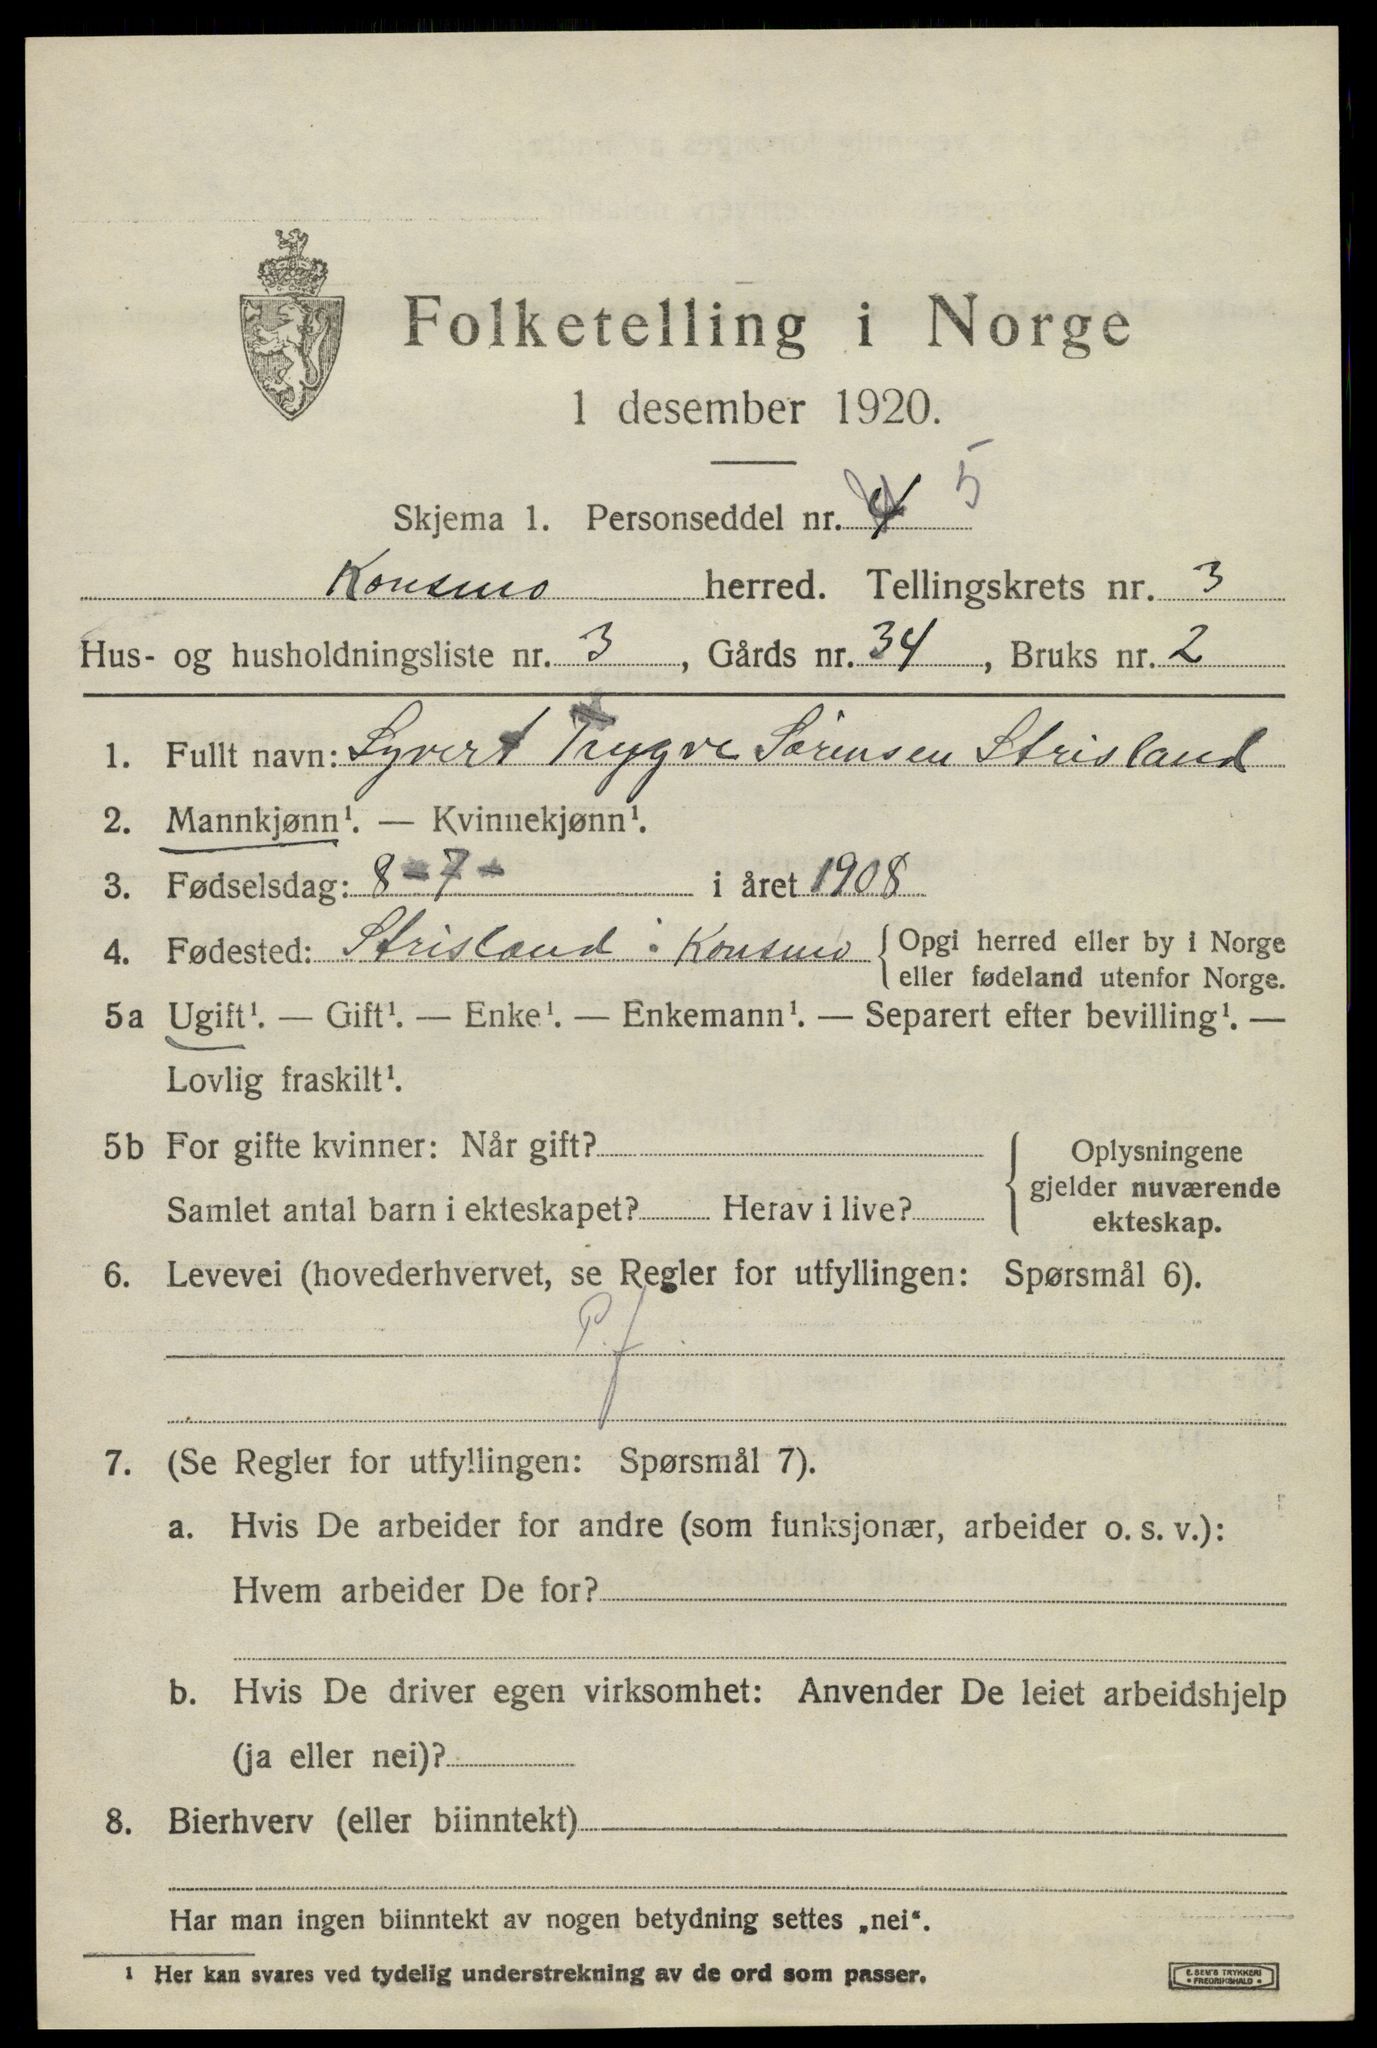 Folketelling i Norge
1 desember 1920.
Skjema 1. Personseddel nr. 4 5
Konsmo herred. Tellingskrets nr. 3
Hus- og husholdningsliste nr. 3, Gårds nr. 34, Bruks nr. 2
1. Fullt navn: Syvert Trygve Sørensen Strisland
2. Mannkjønn¹. — Kvinnekjønn¹.
3. Fødselsdag: 8-7- i året 1908
4. Fødested: Strisland i Konsmo {Opgi herred eller by i Norge
eller fødeland utenfor Norge.
5a Ugift¹. — Gift¹. — Enke¹. — Enkemann¹. — Separert efter bevilling¹. —
Lovlig fraskilt¹.
5b For gifte kvinner: Når gift?
Samlet antal barn i ekteskapet? Herav i live?
{Oplysningene
gjelder nuværende
ekteskap.
6. Levevei (hovederhvervet, se Regler for utfyllingen: Spørsmål 6).
P. f
7. (Se Regler for utfyllingen: Spørsmål 7).
a. Hvis De arbeider for andre (som funksjonær, arbeider o. s. v.):
Hvem arbeider De for?
b. Hvis De driver egen virksomhet: Anvender De leiet arbeidshjelp
(ja eller nei)?
8. Bierhverv (eller biinntekt)
Har man ingen biinntekt av nogen betydning settes „nei“.
¹ Her kan svares ved tydelig understrekning av de ord som passer.
E. SEM'S TRYKKERI
• FREDRIKSHALD •